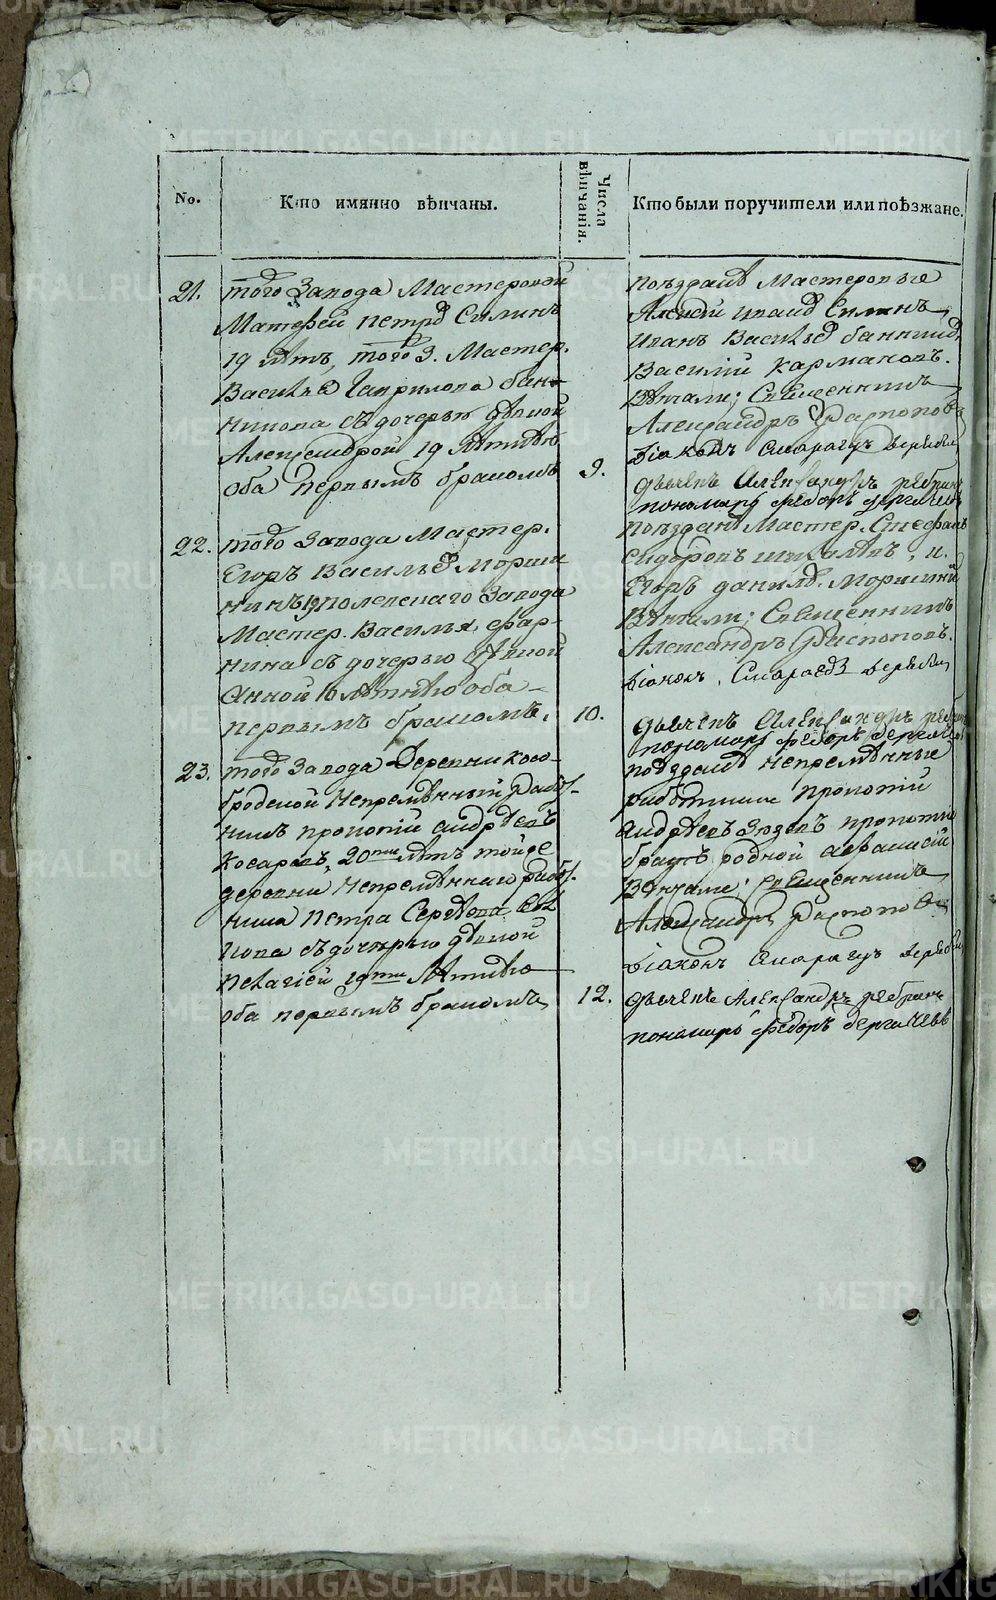 No.
Кто имянно вѣнчаны.
Числа вѣнчанія.
Кто были поручители или поѣзжане.
21.
того Завода Мастеровой
Матфей петровъ Силинъ
19 лѣтъ, того З. Мастер.
Василья Гаврилова бан-
никова съ дочерью дѣвкой
Александрой 19 лѣтнею
оба первымъ бракомъ
9.
поѣзжане Мастеровые
Алексѣй Силинъ
Иванъ
Василій Кармановъ.
Вѣнчали; Священникъ
Александръ Распоповъ
діаконъ Смарагдъ
дьячекъ Александръ
пономарь Федоръ
22.
того Завода Мастер.
Егоръ Васильевъ Морши
нинъ 19 полевскаго Завода
Мастер. Василья
нина съ дочерью дѣвкой
Анной лѣтнею оба
первымъ бракомъ,
10.
поѣзжане Мастер. Стефанъ
Сидоровъ и
Егоръ данилов. Моршинин
Вѣнчали; Священникъ
Александръ Распоповъ.
діаконъ, Смарагдъ
дьячекъ Александръ
пономарь Федоръ
23.
того Завода Деревни косо-
бродской Непремѣнный работ-
никъ прокопій андрѣевъ
Косаревъ, 20ти лѣтъ тойже
деревни Непремѣннаго работ-
ника Петра Сергѣева
нова съ дочерью дѣвкой
Пелагіей 19ти лѣтнею
оба первымъ бракомъ,
12.
поѣзжане непремѣнные
работники прокопій
андрѣевъ прокопію
братъ родной афанасій
Вѣнчали: Священникъ
Александръ Распоповъ
діаконъ Смарагдъ
дьячекъ Александръ
пономарь Федоръ дергачевъ
METRIKI.GASO-URAL.RU